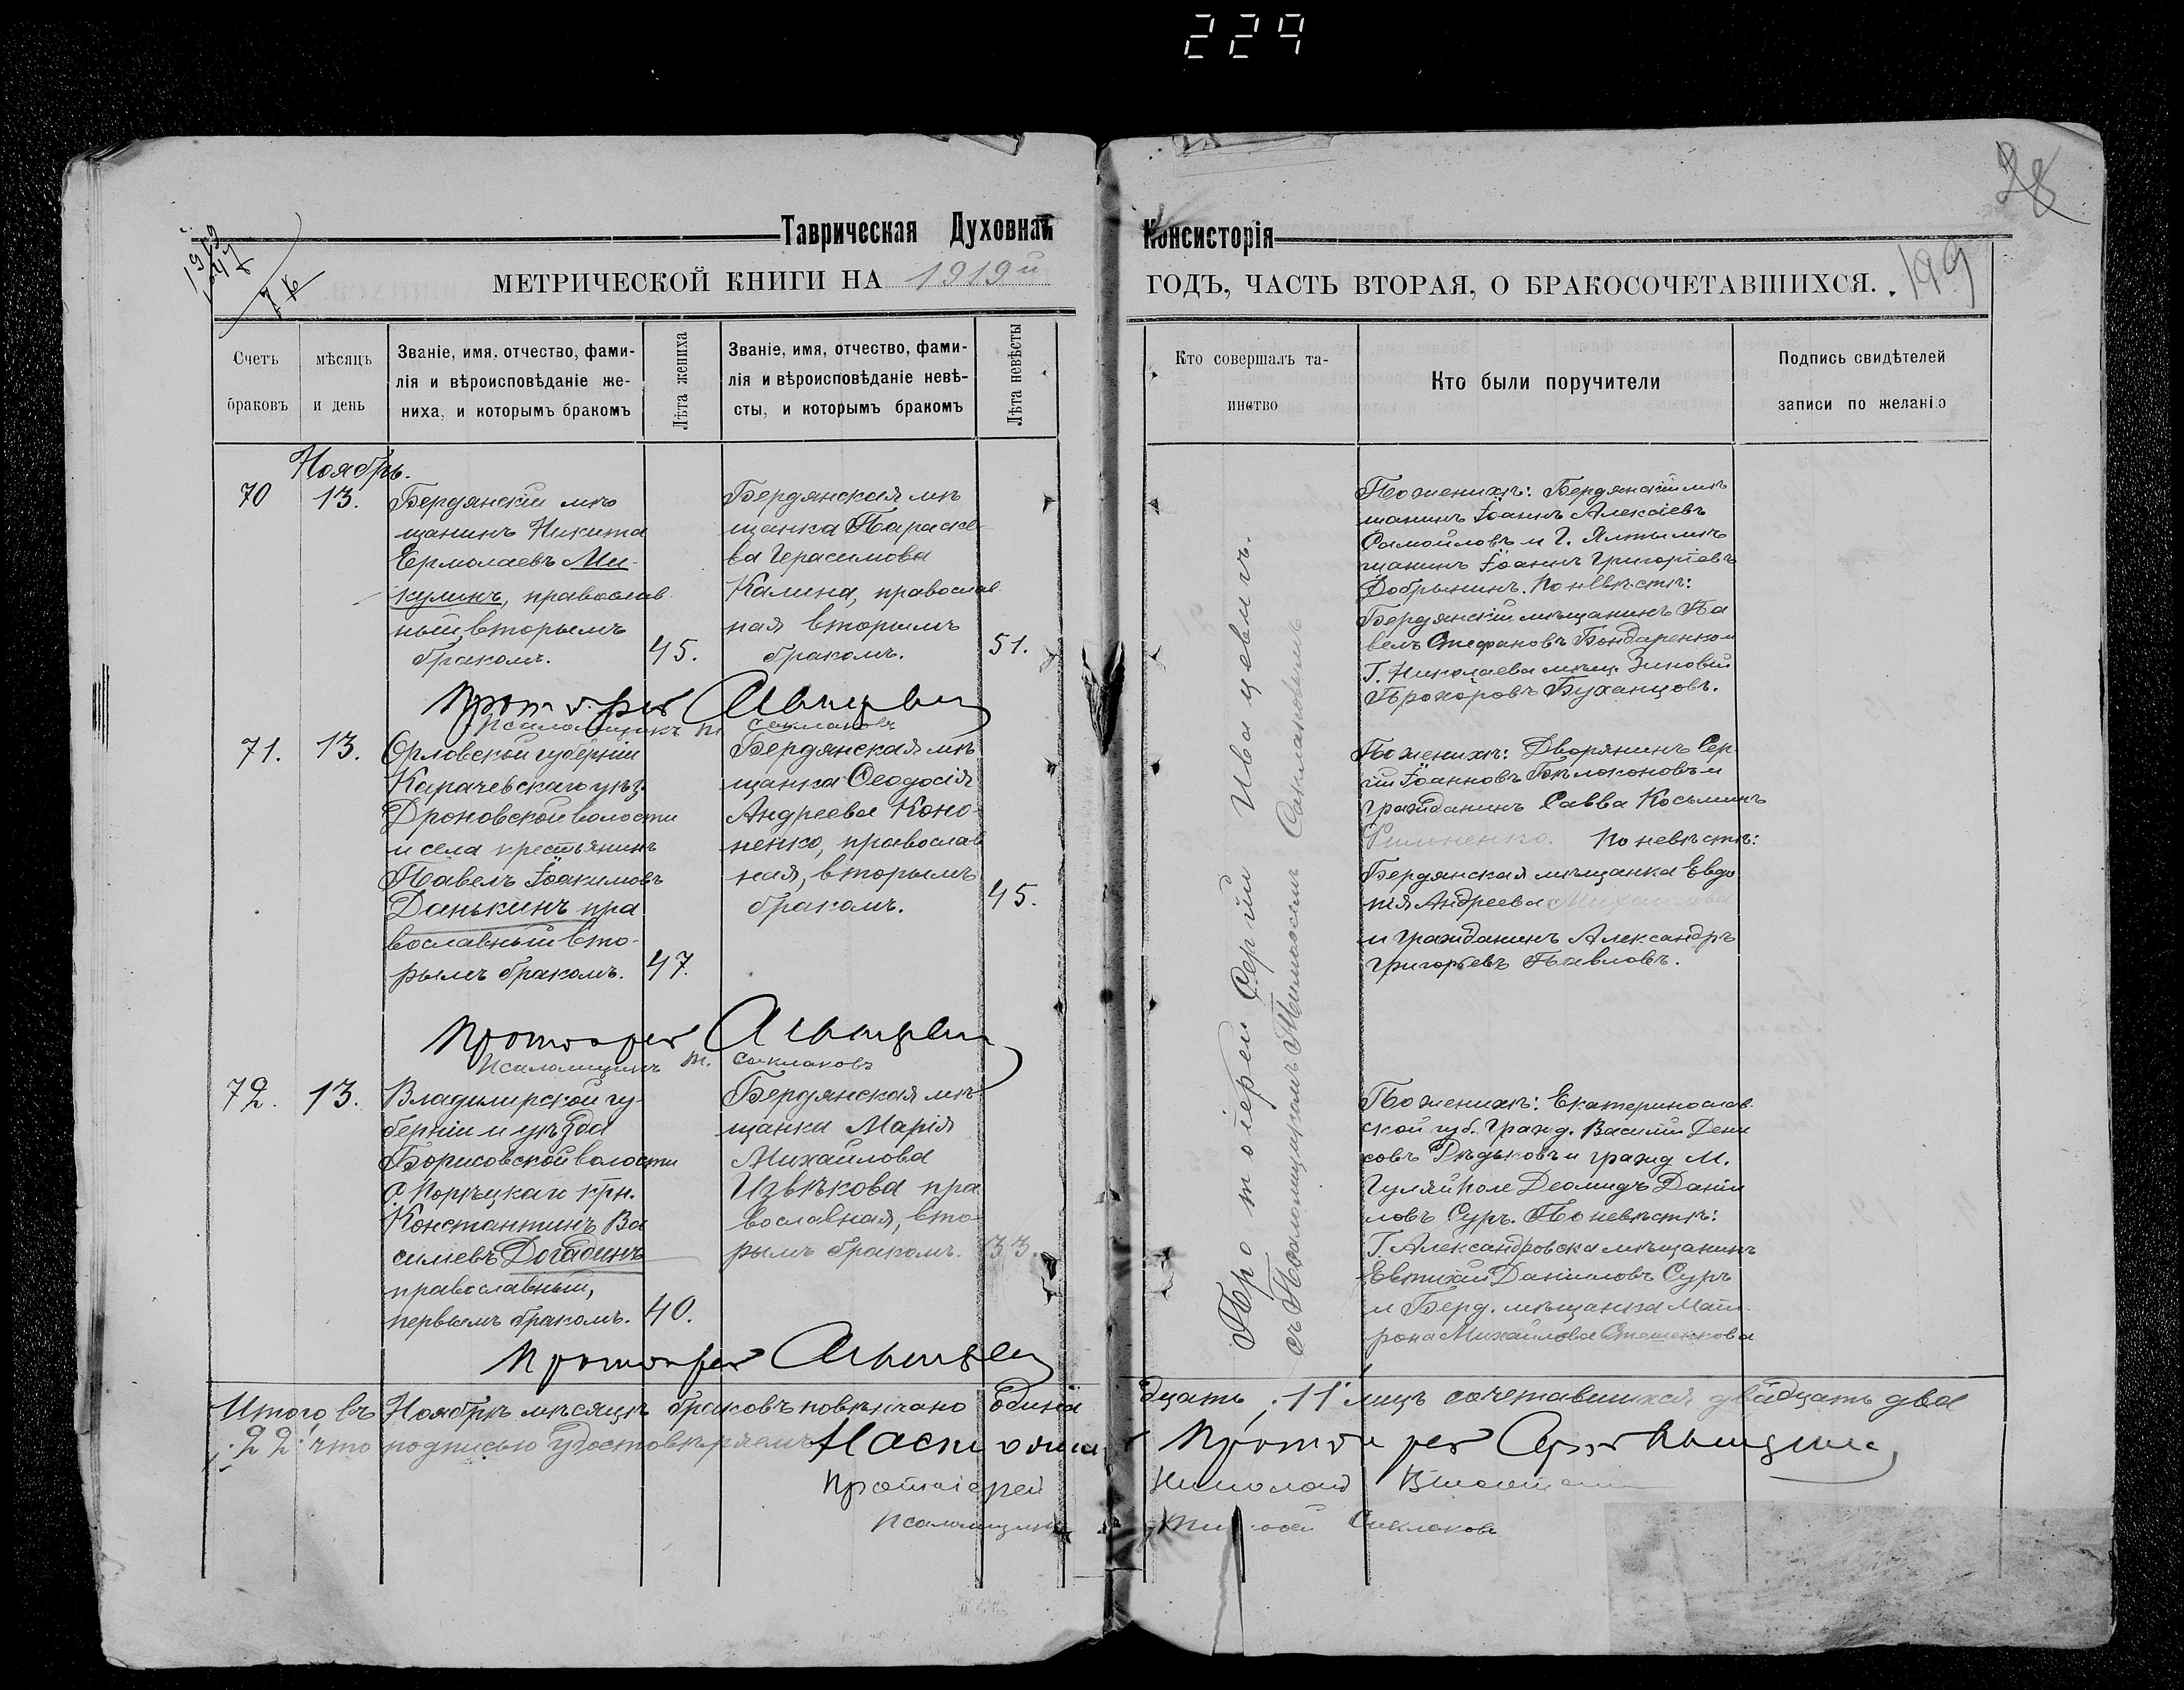 229
28
199
Таврическая Духовная Консисторія
МЕТРИЧЕСКОЙ КНИГИ НА 1919й ГОДЪ, ЧАСТЬ ВТОРАЯ, О БРАКОСОЧЕТАВШИХСЯ.
Счетъ
браковъ
мѣсяцъ
и день
Званіе, имя, отчество, фами-
лія и вѣроисповѣданіе же-
ниха, и которымъ бракомъ
Лѣта жениха
Званіе, имя, отчество, фами-
лія и вѣроисповѣданіе невѣ-
сты, и которымъ бракомъ
Лѣта невѣсты
Кто совершалъ та-
инство
Кто были поручители
Подпись свидѣтелей
записи по желанію
Ноябрь.
70
13.
Бердянскій мѣ
щанинъ Никита
Ермолаевъ Ми-
кулинъ, православ
ный вторымъ
бракомъ.
45.
Бердянская мѣ
щанка Параске
ва Герасимова
Калина, православ
ная вторымъ
бракомъ.
51.
По женихѣ: Бердянскій мѣ
щанинъ Іоаннъ Алексіевъ
Самойловъ и г. Ялты мѣ
щанинъ Іоаннъ Григоріевъ
Добрынинъ. По невѣстѣ:
Бердянскій мѣщанинъ Па
велъ Стефановъ Бондаренко и
Г. Николаева мѣщ. Зиновій
Прохоровъ Буханцовъ.
Протоіерей
Псаломщикъ Т. Саклаковъ
71.
13.
Орловской губерніи
Карачевскаго уѣз.
Дроновской волости
и села крестьянинъ
Павелъ Іоакимовъ
Данькинъ пра
вославный вто-
рымъ бракомъ.
47.
Бердянская мѣ
щанка Ѳеодосія
Андреева Коно-
ненко, православ
ная, вторымъ
бракомъ.
45.
По женихѣ: Дворянинъ Сер
гій Іоанновъ Бѣлоконовъ и
гражданинъ Савва Косьминъ
Филоненко. По невѣстѣ:
Бердянская мѣщанка Евдо
кія Андреева Михайлова
и гражданинъ Александръ
Григорьевъ Павловъ.
Протоіерей
Псаломщикъ Т. Саклаковъ
72.
13.
Владимирской гу-
берніи и уѣзда
Борисовской волости
с. Порѣцкаго крн.
Константинъ Ва
сильевъ Догадинъ
православный,
первымъ бракомъ.
40.
Бердянская мѣ-
щанка Марія
Михайлова
Извѣкова пра
вославная, вто-
рымъ бракомъ.
33.
По женихѣ: Екатеринослав-
ской губ. гражд. Василій Дени
совъ Дѣдьковъ и гражд М.
Гуляй поле Деомидъ Даніи
ловъ Суръ. По невѣстѣ:
Г. Александровска мѣщанинъ
Евтихій Данииловъ Суръ
и Берд. мѣщанка Мат
рона Михайлова Стешенкова
Протоіерей
Протоіерей Сергій Ивацевичъ.
съ Псаломщикомъ Тимоѳеемъ Саклаковымъ
Итого въ Ноябрѣ мѣсяцѣ браковъ повѣнчано одинна дцать ; 11 лицъ сочетавшихся двадцать два
; 22: что подписью удостовѣряемъ Настоятель Протоіерей Сергій
Протоіерей Николай
Псаломщикъ Тимоѳей Саклаковъ